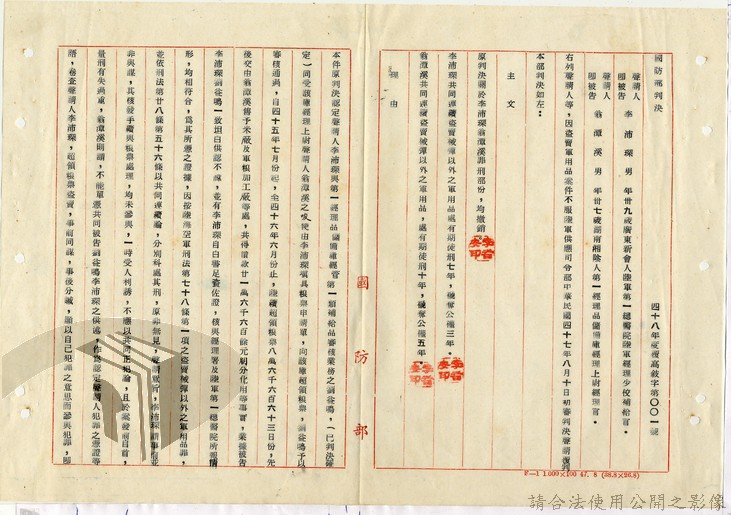 國防部判決　四十八年度覆高敘字第〇〇一號
聲請人
即被告　李沛璨　男　年卅九歲廣東新會人陸軍第一總醫院陸軍經理少校補給官。
聲請人
即被告　翁潭溪　男　年卅七歲湖南湘陰人第一經理品儲備庫經理上尉經理官。
右列聲請人等，因盜賣軍用品案件不服陸軍供應司令部中華民國四十七年八月十日初審判決聲請覆判
本部判決如左：
主文
原判決關於李沛璨翁潭溪罪刑部份，均撤銷
李沛璨共同連續盜賣被彈以外之軍用品處有期徒刑七年，褫奪公權三年。
翁潭溪共同連續盜賣被彈以外之軍用品，處有期徒刑十年，褫奪公權五年。
理由
本件原判決認定聲請人李沛璨與第一經理品儲備庫經管第一類補給品審核業務之謝從鳴，（已判決確
定）同受該庫經理上尉聲請人翁潭溪之唆使由李沛璨填具糧票申請單，向該庫超領糧票，謝從鳴予以
審核通過，自四十五年七月份起，至四十六年六月份止，陸續超領糧票八萬六千六百六十三日份，先
後交由翁潭溪售予米廠及軍糧加工廠等處，共得贓款廿一萬六千六百餘元朋分化用等事實，業據被告
李沛璨謝從鳴一致坦白供認不諱，並有李沛璨自白書足資佐證，核與經理署及陸軍第一總醫院所報情
形，均相符合，為其所憑之證據，因按陸海空軍刑法第七十八條第一項之盜賣被彈以外之軍用品罪，
並依刑法第廿八條第五十六條以共同連續論，分別科處其刑，原非無見，聲請意旨，李沛璨謂事前並
非與謀，其核發手續與糧票處理，均未參與，一時受人利誘，不應以共同正犯論，且於案發前自首，
量刑有失過重，翁潭溪則謂，不能單憑共同被告謝從鳴李沛璨之供述，作為認定聲請人犯罪之憑證等
語，卷查聲請人李沛璨，超領糧票盜賣，事前同謀，事後分贓，顯以自己犯罪之意思而參與犯罪，顯
國防部
F—1 1.000×100 47. 8 (38.8×26.8)
請合法使用公開之影像